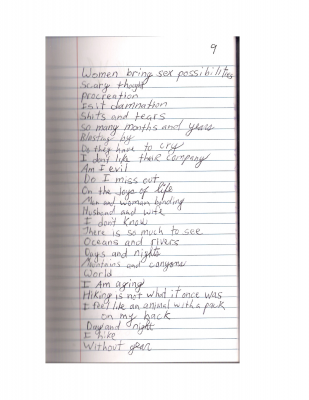 9
Women bring sex possibilities
Scary thought
procreation
Is it damnation
Shits and tears
so many months and years
Blasting by
Do they have to cry
I don't like their company
Am I evil
Do I miss out
On the joys of life
Men and woman bonding
Husband and wife
I don't know
There is so much to see
Oceans and rivers
Days and nights
Mountains and canyons
World
I Am aging
Hiking is not what it once was
I feel like an animal with a pack
on my back
Day and night
I hike
Without fear